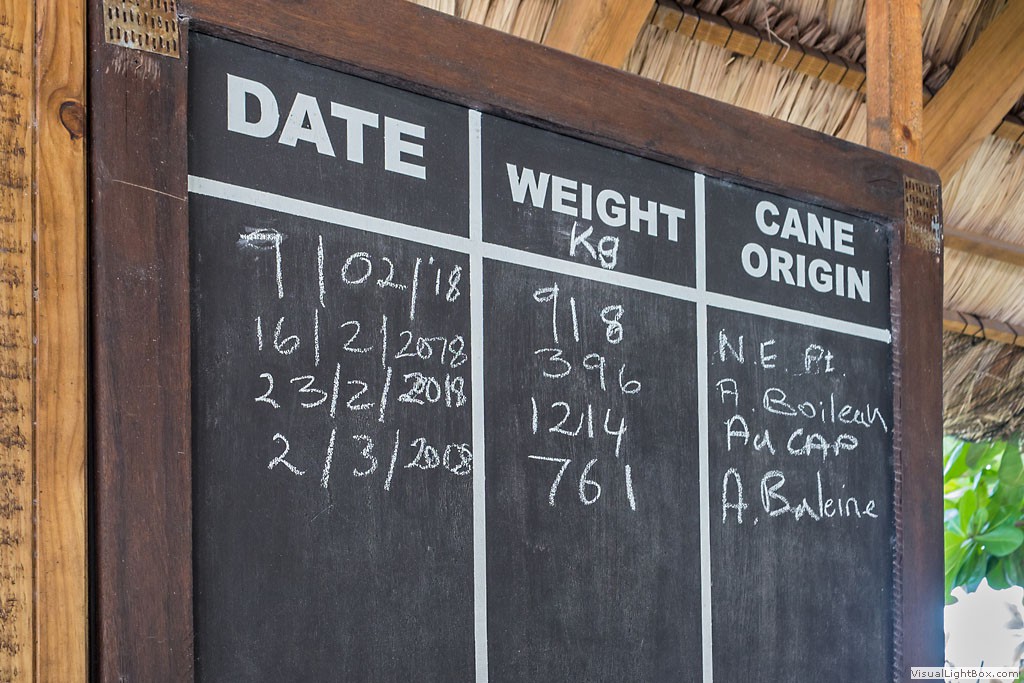 DATE WEIGHT Kg CANE ORIGIN
9/02/18 918 N.E Pt.
16/2/2018 396 A. Boileau
23/2/2018 1214 Au CAP
2/3/2018 761 A. Baleine
VisualLightBox.com